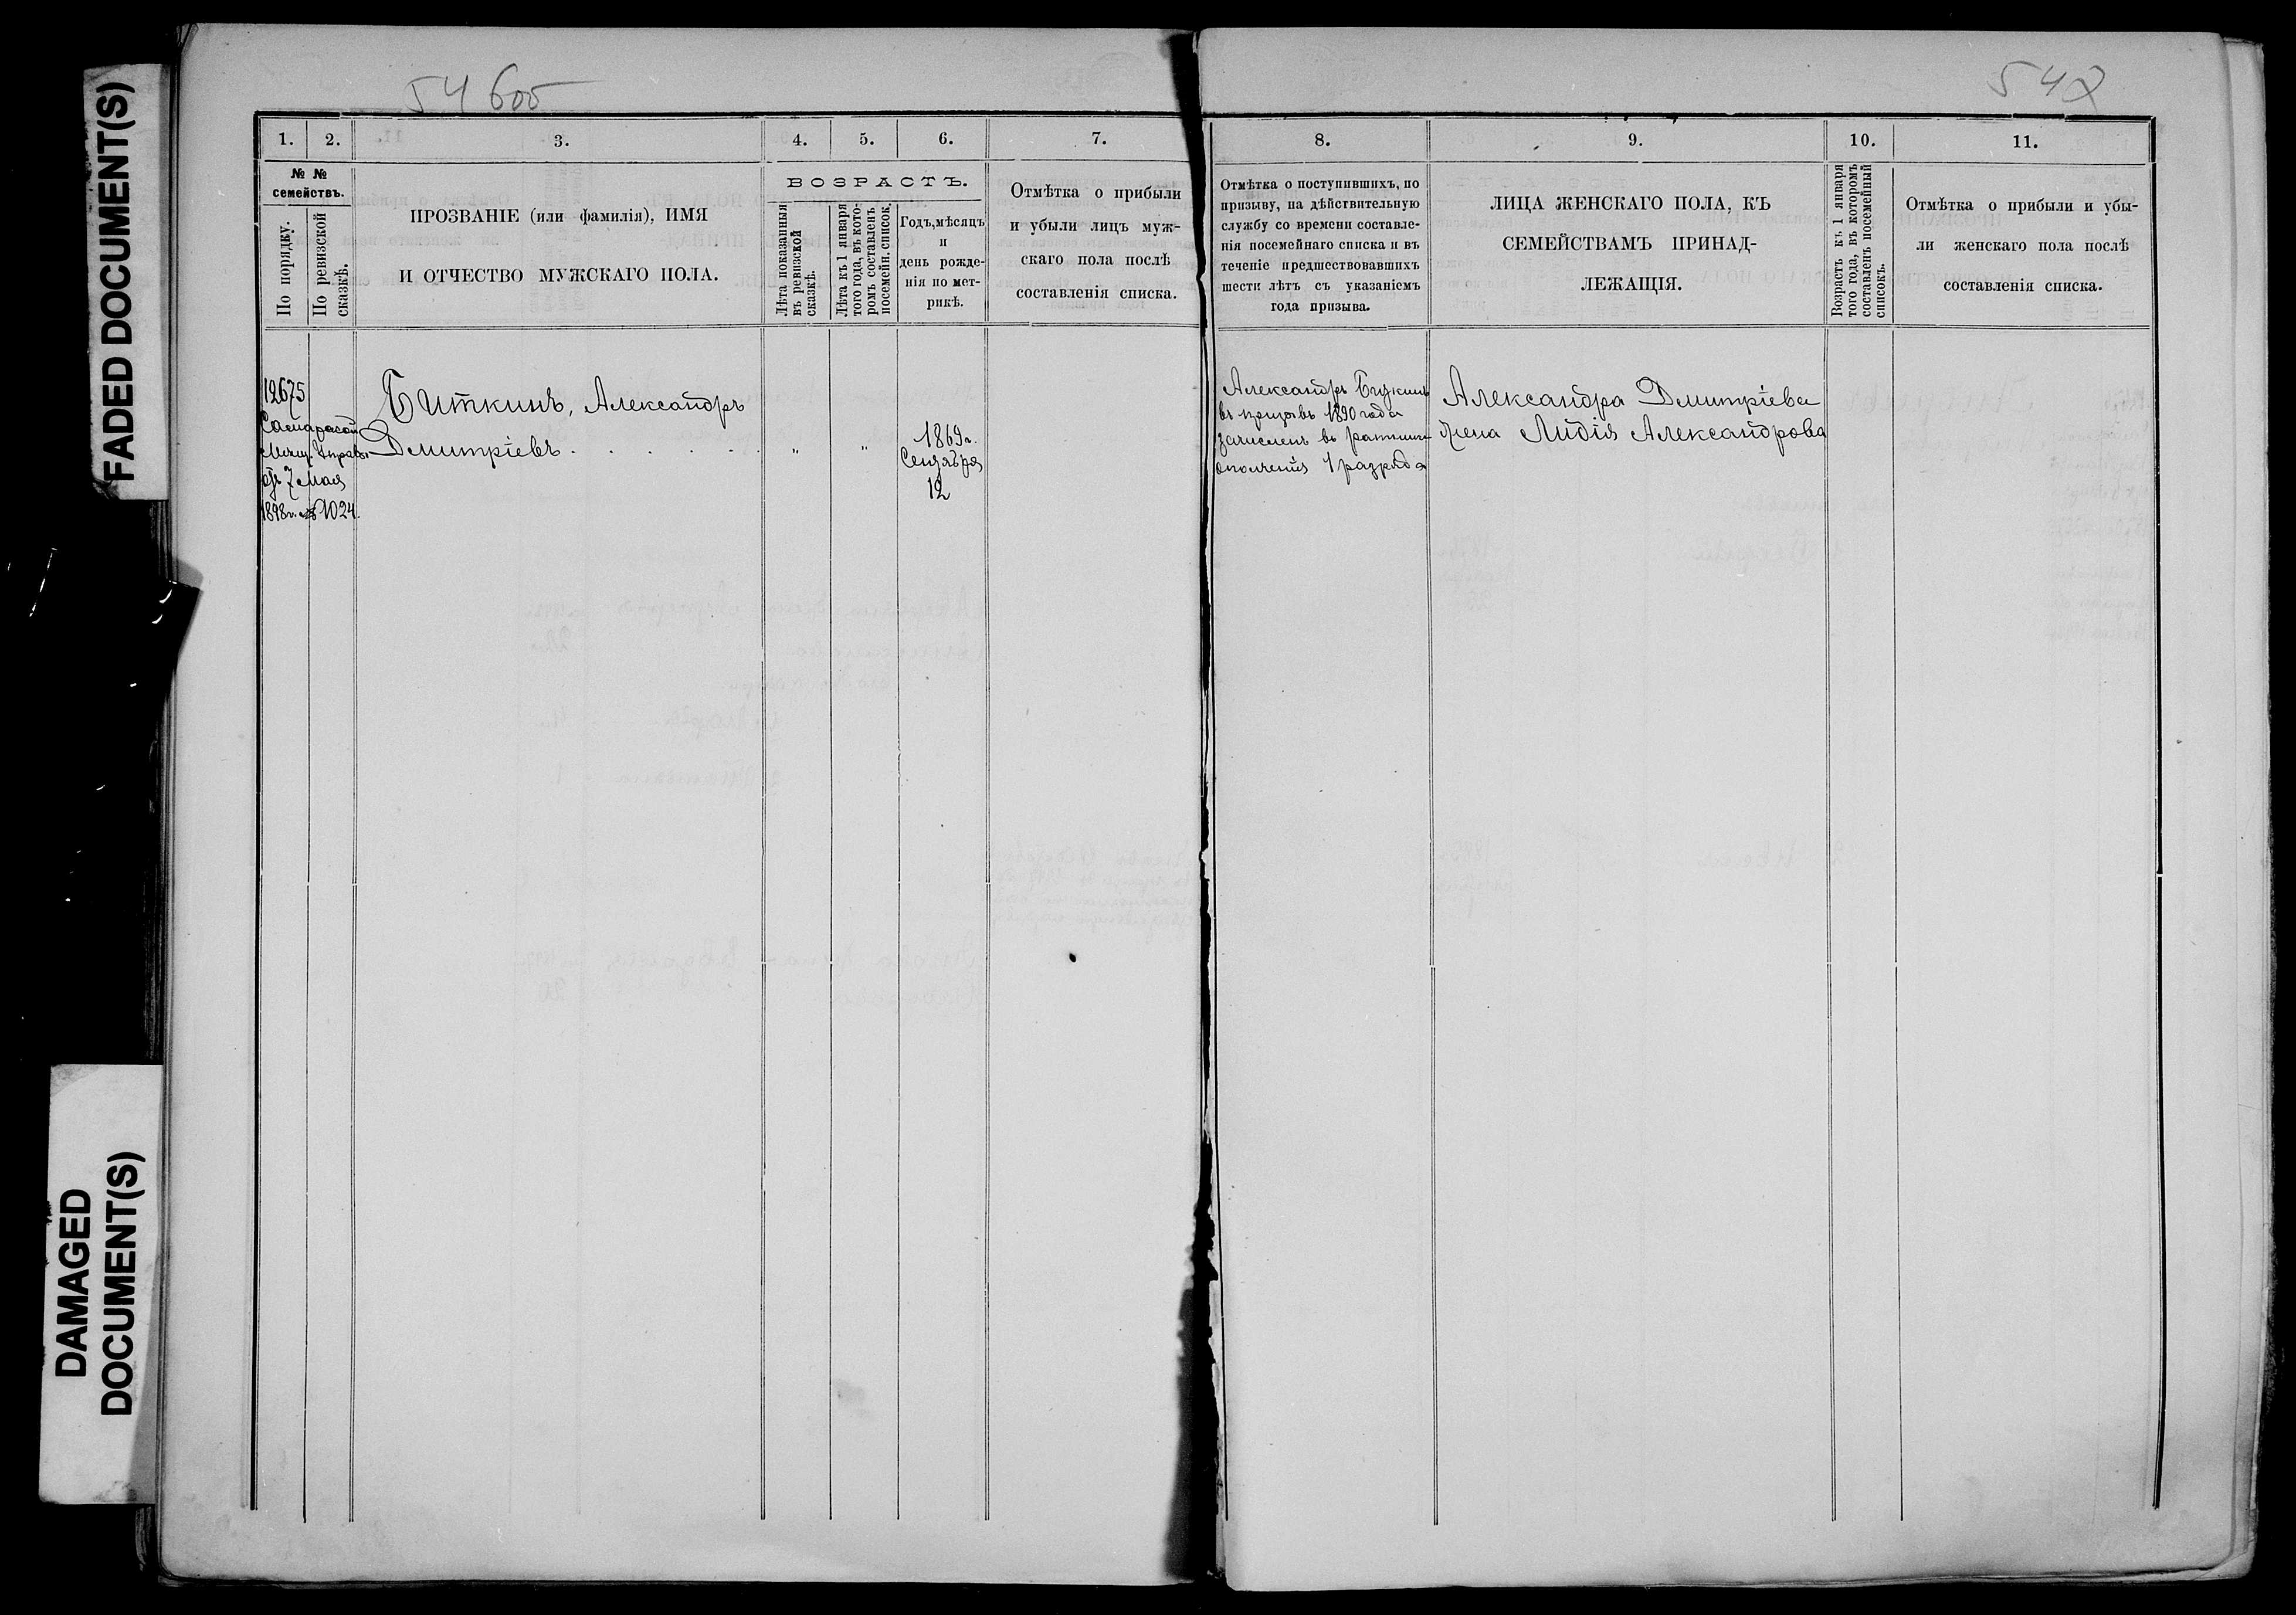 FADED DOCUMENT(S)
DAMAGED
DOCUMENT(S)
54 боб
542
1.
2.
3.
4.
5.
6.
7.
8.
9.
10.
11.
№ №
семействъ.
По порядку.
По ревизской
сказкѣ.
ПРОЗВАНІЕ (или фамилія), ИМЯ
И ОТЧЕСТВО МУЖСКАГО ПОЛА.
ВОЗРАСТЪ.
Лѣта показанныя
въ ревизской
сказкѣ.
Лѣта къ 1 января
того года, въ кото-
ромъ составленъ
посемейн. список.
Годъ, мѣсяцъ
и
день рожде-
нія по мет-
рикѣ.
Отмѣтка о прибыли
и убыли лицъ муж-
скаго пола послѣ
составленія списка.
Отмѣтка о поступившихъ, по
призыву, на дѣйствительную
службу со времени составле-
нія посемейнаго списка и въ
теченіе предшествовавшихъ
шести лѣтъ съ указаніемъ
года призыва.
ЛИЦА ЖЕНСКАГО ПОЛА, КЪ
СЕМЕЙСТВАМЪ ПРИНАД-
ЛЕЖАЩІЯ.
Возрастъ къ 1 января
того года, въ которомъ
составленъ посемейный
списокъ.
Отмѣтка о прибыли и убы-
ли женскаго пола послѣ
составленія списка.
12675
Самарской
Мѣщ. Управы
отъ 7 Мая
1898 г. № 1024.
Биткинъ, Александръ
Дмитріевъ . . . . . . " "
1869 г.
Сентября
12
Александръ Биткинъ
въ призывъ 1890 года
зачисленъ въ ратники
ополченія 1 разряда
Александра Дмитріева
жена Лидія Александрова